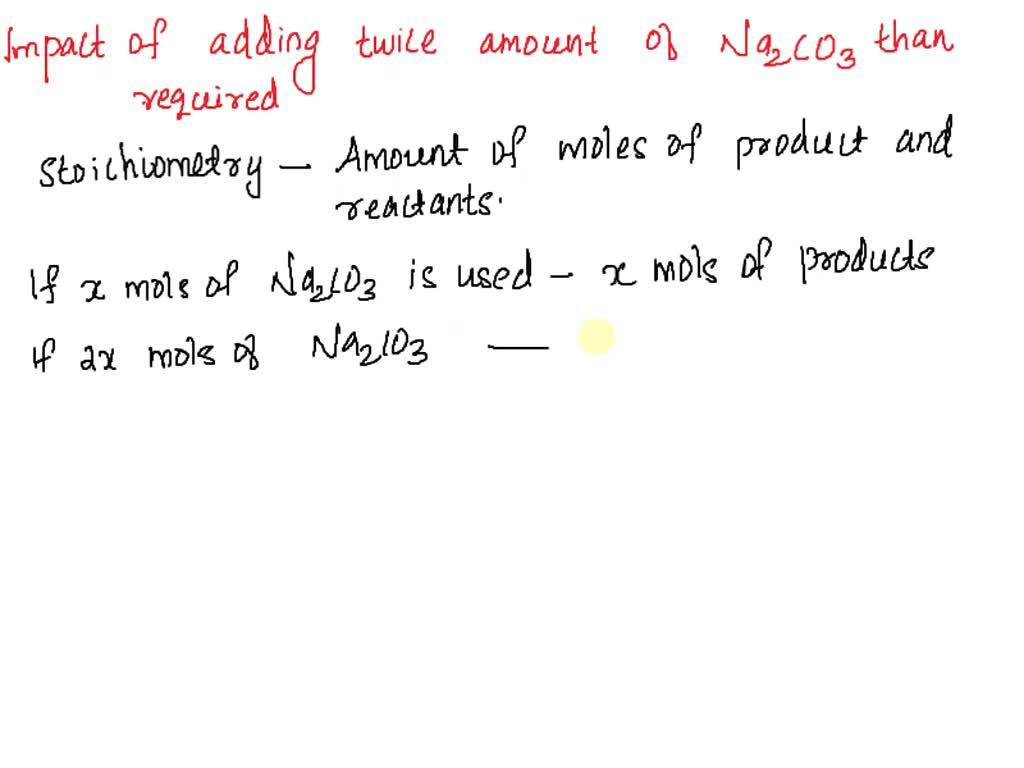 Impact of adding twice amount of Na2CO3 than
required
Stoichiometry – Amount of moles of product and
reactants.
If x mols of Na2CO3 is used – x mols of products
If 2x mols of Na2CO3 —